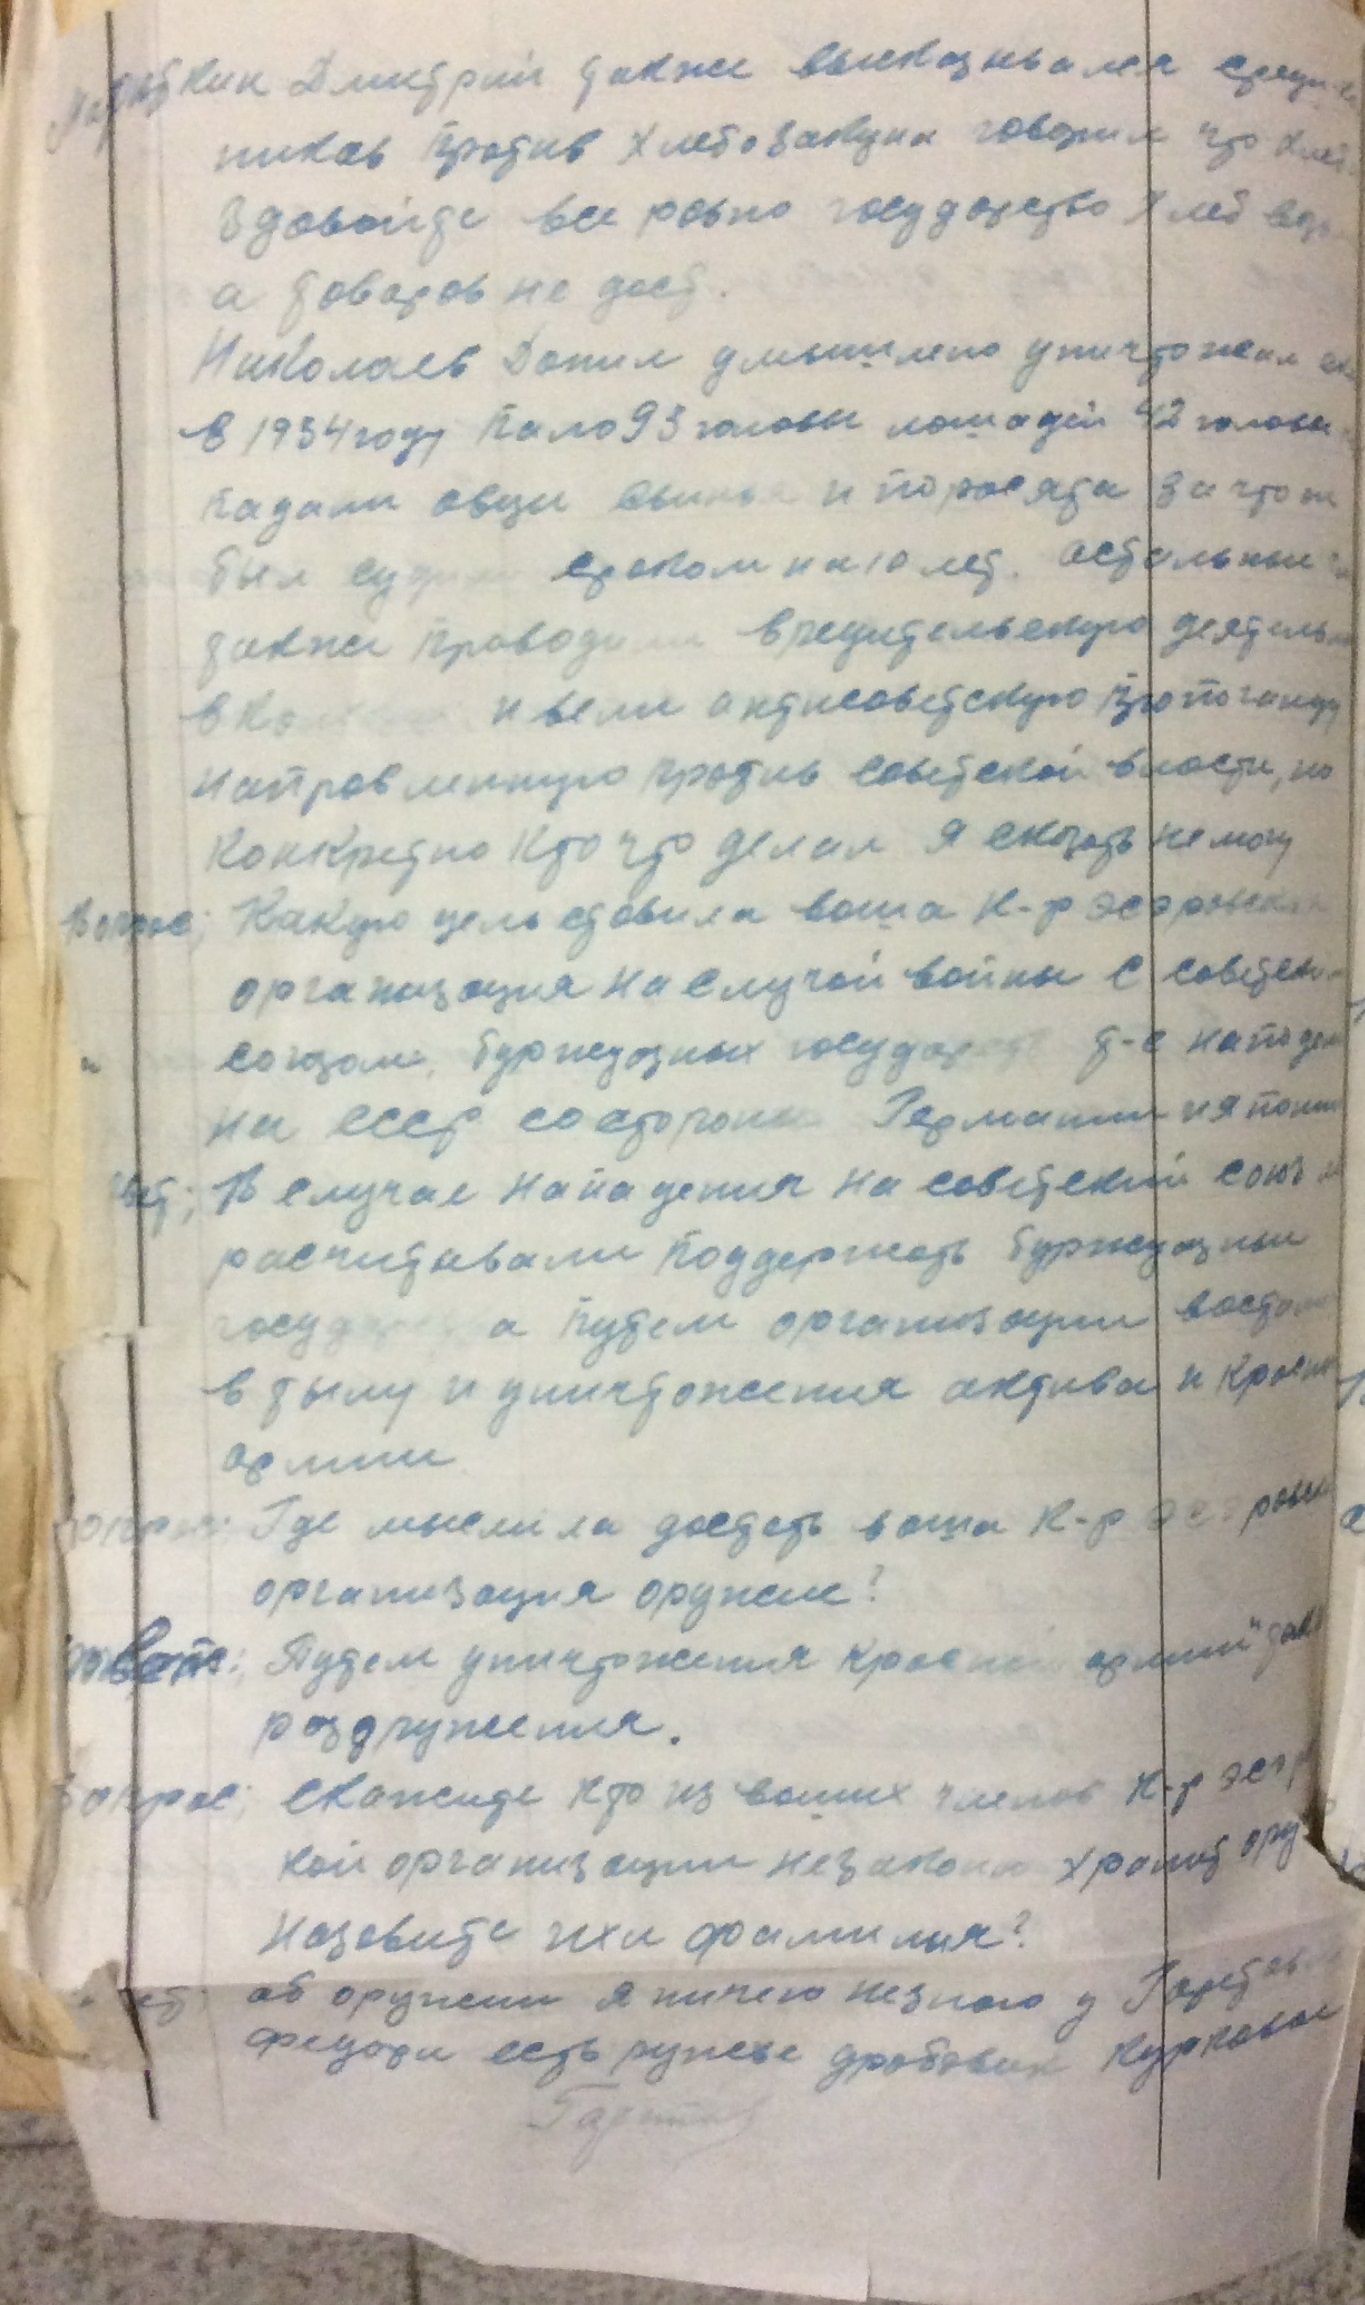 кин Дмитрий также высказывался среди
ников против хлебозакупа говорил что хлеб
здовойте все ровно государство хлеб
а товаров не даст.
Николаев Данил умышлено уничтожал
в 1934 году пало 93 головы лошадей 42 головы
падали овци свиньи и поросята за что
был судим сроком на 10 лет. остальные
также проводили вредительскую деятельн
в и вели антисоветскую пропоганду
направленную против советской власти, но
конкретно кто что делал я сказать не могу
Вопрос; Какую цель ставила ваша к-р эсэровская
организация на случай войны с советским
союзом, буржуазных государств т-е нападен
на СССР со стороны Германии и япони
В случае нападения на советский союз
расчитывали поддержать буржуазные
государства путем организации востан
в тылу и уничтожения актива и красн
армии
Вопрос: Где мыслила достать ваша к-р эсэровск
организация оружие?
ответ: Путем уничтожения красной армии
разаружения.
Вопрос; скажите кто из ваших членов к-р эсэр
кой организации незаконо хранит ору
назовите ихи фамилия?
об оружении я ничего незнаю у
Федора есть ружье дробовик курковое